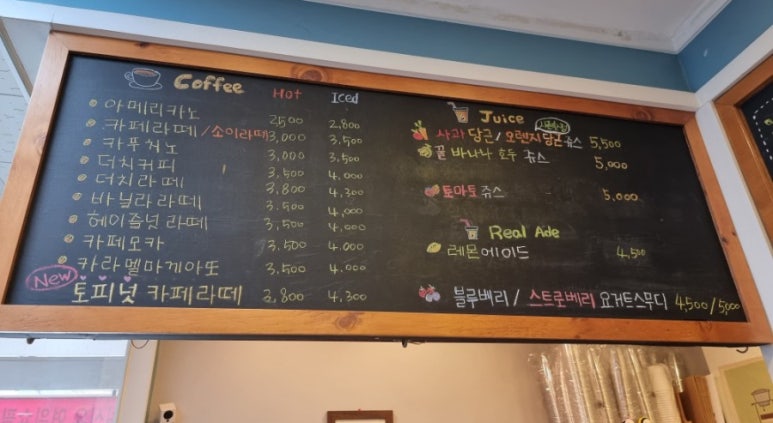 Coffee Hot Iced
아메리카노 2,500 2,800
카페라떼/소이라떼 3,000 3,500
카푸치노 3,000 3,500
더치커피 3,500 4,000
더치라떼 3,800 4,300
바닐라라떼 3,500 4,000
헤이즐넛 라떼 3,500 4,000
카페모카 3,500 4,000
카라멜마끼아또 3,500 4,000
New
토피넛 카페라떼 2,800 4,300
Juice
사과당근/오렌지당근쥬스 5,500
꿀 바나나 호두 쥬스 5,000
토마토쥬스 5,000
Real Ade
레몬에이드 4,500
블루베리/스트로베리 요거트스무디 4,500/5,000